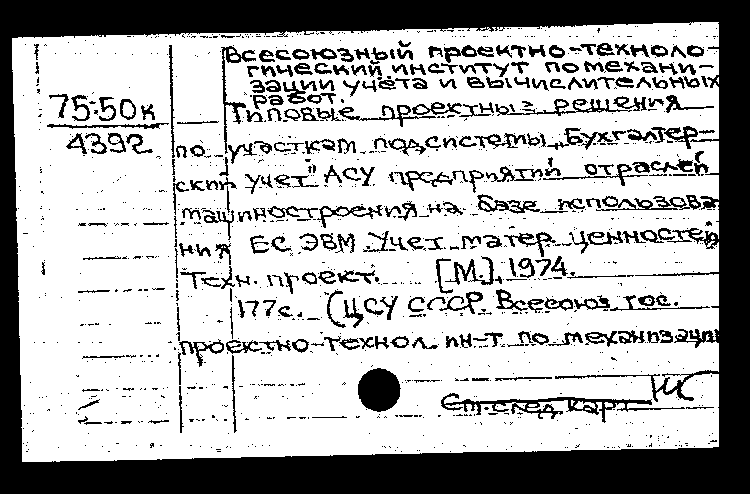 Всесоюзный проектно-техноло-
гический институт по механи-
зации учёта и вычислительных
работ.
75-50к
4392
Типовые проектные решения
по участкам подсистемы „Бухгалтер-
ский учет" АСУ предприятий отраслей
машиностроения на базе использова-
ния ЕС ЭВМ. Учет матер. ценностей
Техн. проект. [М.], 1974.
177с. (ЦСУ СССР. Всесоюз. гос.
проектно-технол. ин-т по механизации
См. след. карт